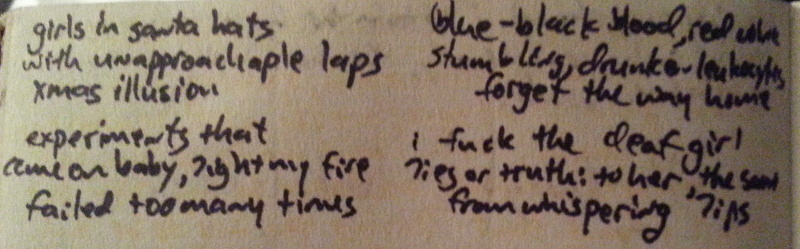 girls in santa hats
with unapproachaple laps
xmas illusion
experiments that
come on baby, light my fire
failed too many times
blue-black blood, red wine
stumbling, drunken leukocytes
forget the way home
i fuck the deaf girl
lies or truth: to her the same
from whispering lips